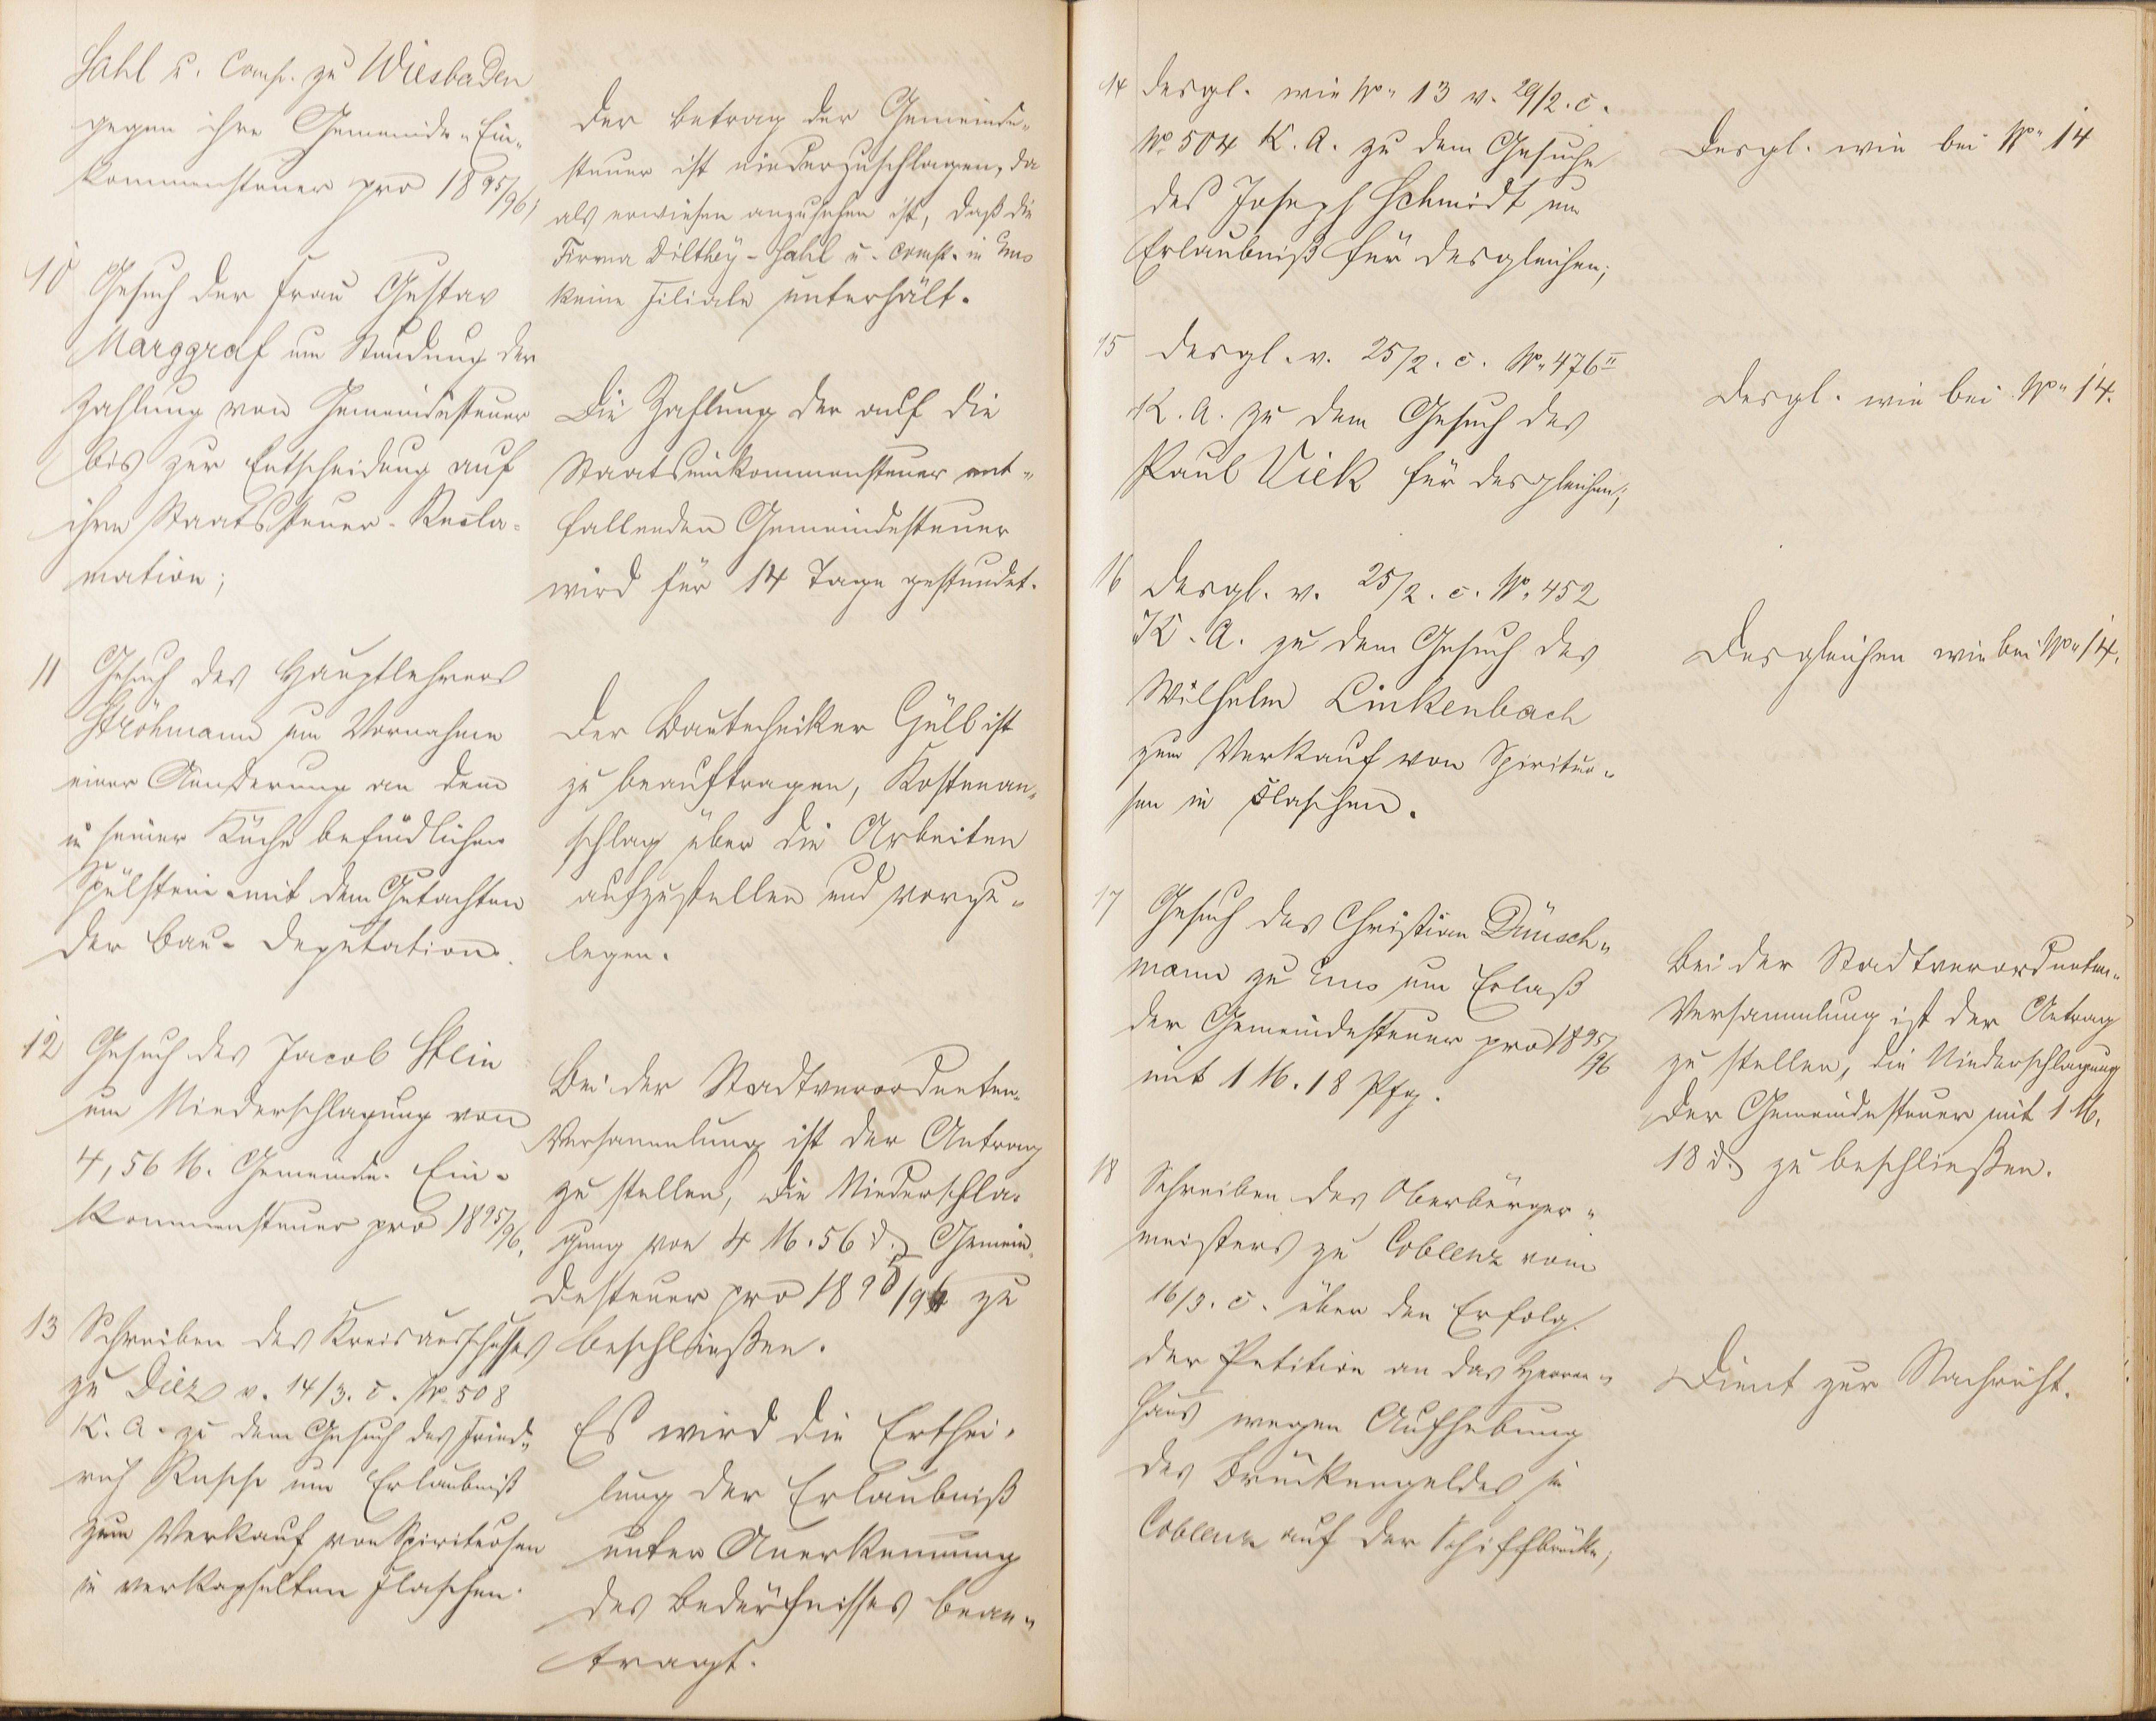 Sahl u. Comp. zu Wiesbaden
gegen ihre Gemeinde-Ein-
kommensteuer pro 1895/96;
Der Betrag der Gemeinde-
steuer ist niederzuschlagen, da
als erwiesen anzusehen ist, daß die
Firma Dilthey-Sahl u. Comp. in Ems
keine Filiale unterhält.
10
Gesuch der Frau Gustav
Marggraf um Stundung der
Zahlung von Gemeindesteuer
bis zur Entscheidung auf
ihre Staatssteuer-Recla-
mation;
Die Zahlung der auf die
Staatseinkommensteuer ent-
fallenden Gemeindesteuer
wird für 14 Tage gestundet.
11
Gesuch des Hauptlehrers
Ströhmann um Vornahme
einer Aenderung an dem
in seiner Küche befindlichen
Spülstein mit dem Gutachten
der Bau-Deputation.
Der Bautechniker Güll ist
zu beauftragen, Kostenan-
schlag über die Arbeiten
aufzustellen und vorzu-
legen.
12
Gesuch des Jacob Stein
um Niederschlagung von
4,56 M. Gemeinde-Ein-
kommensteuer pro 1895/96.
Bei der Stadtverordneten-
Versammlung ist der Antrag
zu stellen, die Niederschla-
gung von 4 M. 56 d. Gemein-
desteuer pro 1895/96 zu
beschließen.
13
Schreiben des Kreisausschusses
zu Diez v. 14/3. c. No 508
K. A. zu dem Gesuch des Fried-
rich Rasch um Erlaubniß
zum Verkauf von Spirituosen
in verkapselten Flaschen.
Es wird die Erthei-
lung der Erlaubniß
unter Anerkennung
des Bedürfnisses bean-
tragt.
14 desgl. wie No 13 v. 29/2. c.
No 504 K. A. zu dem Gesuche
des Joseph Schmidt um
Erlaubniß für desgleichen;
Desgl. wie bei No 14
15 desgl. v. 25/2. c. No 476 II
K. A. zu dem Gesuch des
Paul Viek für desgleichen;
Desgl. wie bei No 14.
16 desgl. v. 25/2. c. No 452
K. A. zu dem Gesuch des
Wilhelm Linkenbach
zum Verkauf von Spirituo-
sen in Flaschen.
Desgleichen wie bei No 14.
17
Gesuch des Christian Dünsch-
mann zu Ems um Erlaß
der Gemeindesteuer pro 1895/96
mit 1 M. 18 Pfg.
Bei der Stadtverordneten-
Versammlung ist der Antrag
zu stellen, die Niederschlagung
der Gemeindesteuer mit 1 M.
18 d. zu beschließen.
18
Schreiben des Oberbürger-
meisters zu Coblenz vom
16/3. c. über den Erfolg
der Petition an das Herren-
haus wegen Aufhebung
des Brückengeldes in
Coblenz auf der Schiffbrücke;
Dient zur Nachricht.